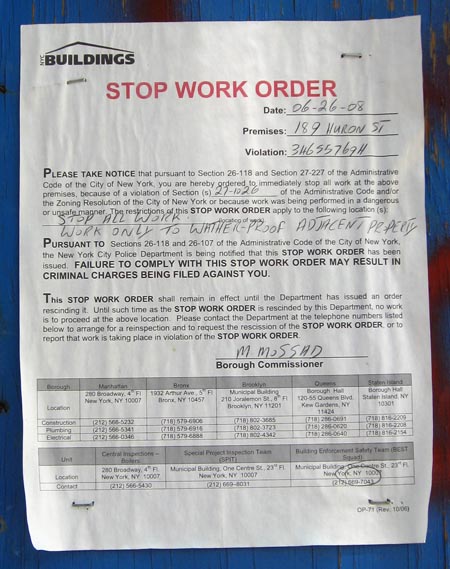 NYC BUILDINGS
STOP WORK ORDER
Date: 06-26-08
Premises: 189 HURON ST
Violation: 34655769H
PLEASE TAKE NOTICE that pursuant to Section 26-118 and Section 27-227 of the Administrative
Code of the City of New York, you are hereby ordered to immediately stop all work at the above
premises, because of a violation of Section (s) 27-1026 of the Administrative Code and/or
the Zoning Resolution of the City of New York or because work was being performed in a dangerous
or unsafe manner. The restrictions of this STOP WORK ORDER apply to the following location (s):
STOP ALL WORK. (location of work)
WORK ONLY TO WHATHER-PROOF ADJACENT PROPERTY
PURSUANT TO Sections 26-118 and 26-107 of the Administrative Code of the City of New York,
the New York City Police Department is being notified that this STOP WORK ORDER has been
issued. FAILURE TO COMPLY WITH THIS STOP WORK ORDER MAY RESULT IN
CRIMINAL CHARGES BEING FILED AGAINST YOU.
This STOP WORK ORDER shall remain in effect until the Department has issued an order
rescinding it. Until such time as the STOP WORK ORDER is rescinded by this Department, no work
is to proceed at the above location. Please contact the Department at the telephone numbers listed
below to arrange for a reinspection and to request the rescission of the STOP WORK ORDER, or to
report that work is taking place in violation of the STOP WORK ORDER.
M MOSSAD
Borough Commissioner
Borough Manhattan Bronx Brooklyn Queens Staten Island
Location 280 Broadway, 4th Fl. New York, NY 10007 1932 Arthur Ave., 5th Fl Bronx, NY 10457 Municipal Building 210 Joralemon St., 8th Fl Brooklyn, NY 11201 Borough Hall 120-55 Queens Blvd. Kew Gardens, NY 11424 Borough Hall Staten Island, NY 10301
Construction (212) 566-5232 (718) 579-6906 (718) 802-3685 (718) 286-0691 (718) 816-2209
Plumbing (212) 566-5341 (718) 579-6916 (718) 802-3723 (718) 286-0620 (718) 816-2208
Electrical (212) 566-0346 (718) 579-6888 (718) 802-4342 (718) 286-0640 (718) 816-2154
Unit Central Inspections – Boilers Special Project Inspection Team (SPIT) Building Enforcement Safety Team (BEST Squad)
Location 280 Broadway, 4th Fl. New York, NY 10007 Municipal Building, One Centre St., 23rd Fl. New York, NY 10007 Municipal Building, One Centre St., 23rd Fl. New York, NY 10007
Contact (212) 566-5430 (212) 669-8031 (212) 669-7043
OP-71 (Rev. 10/06)